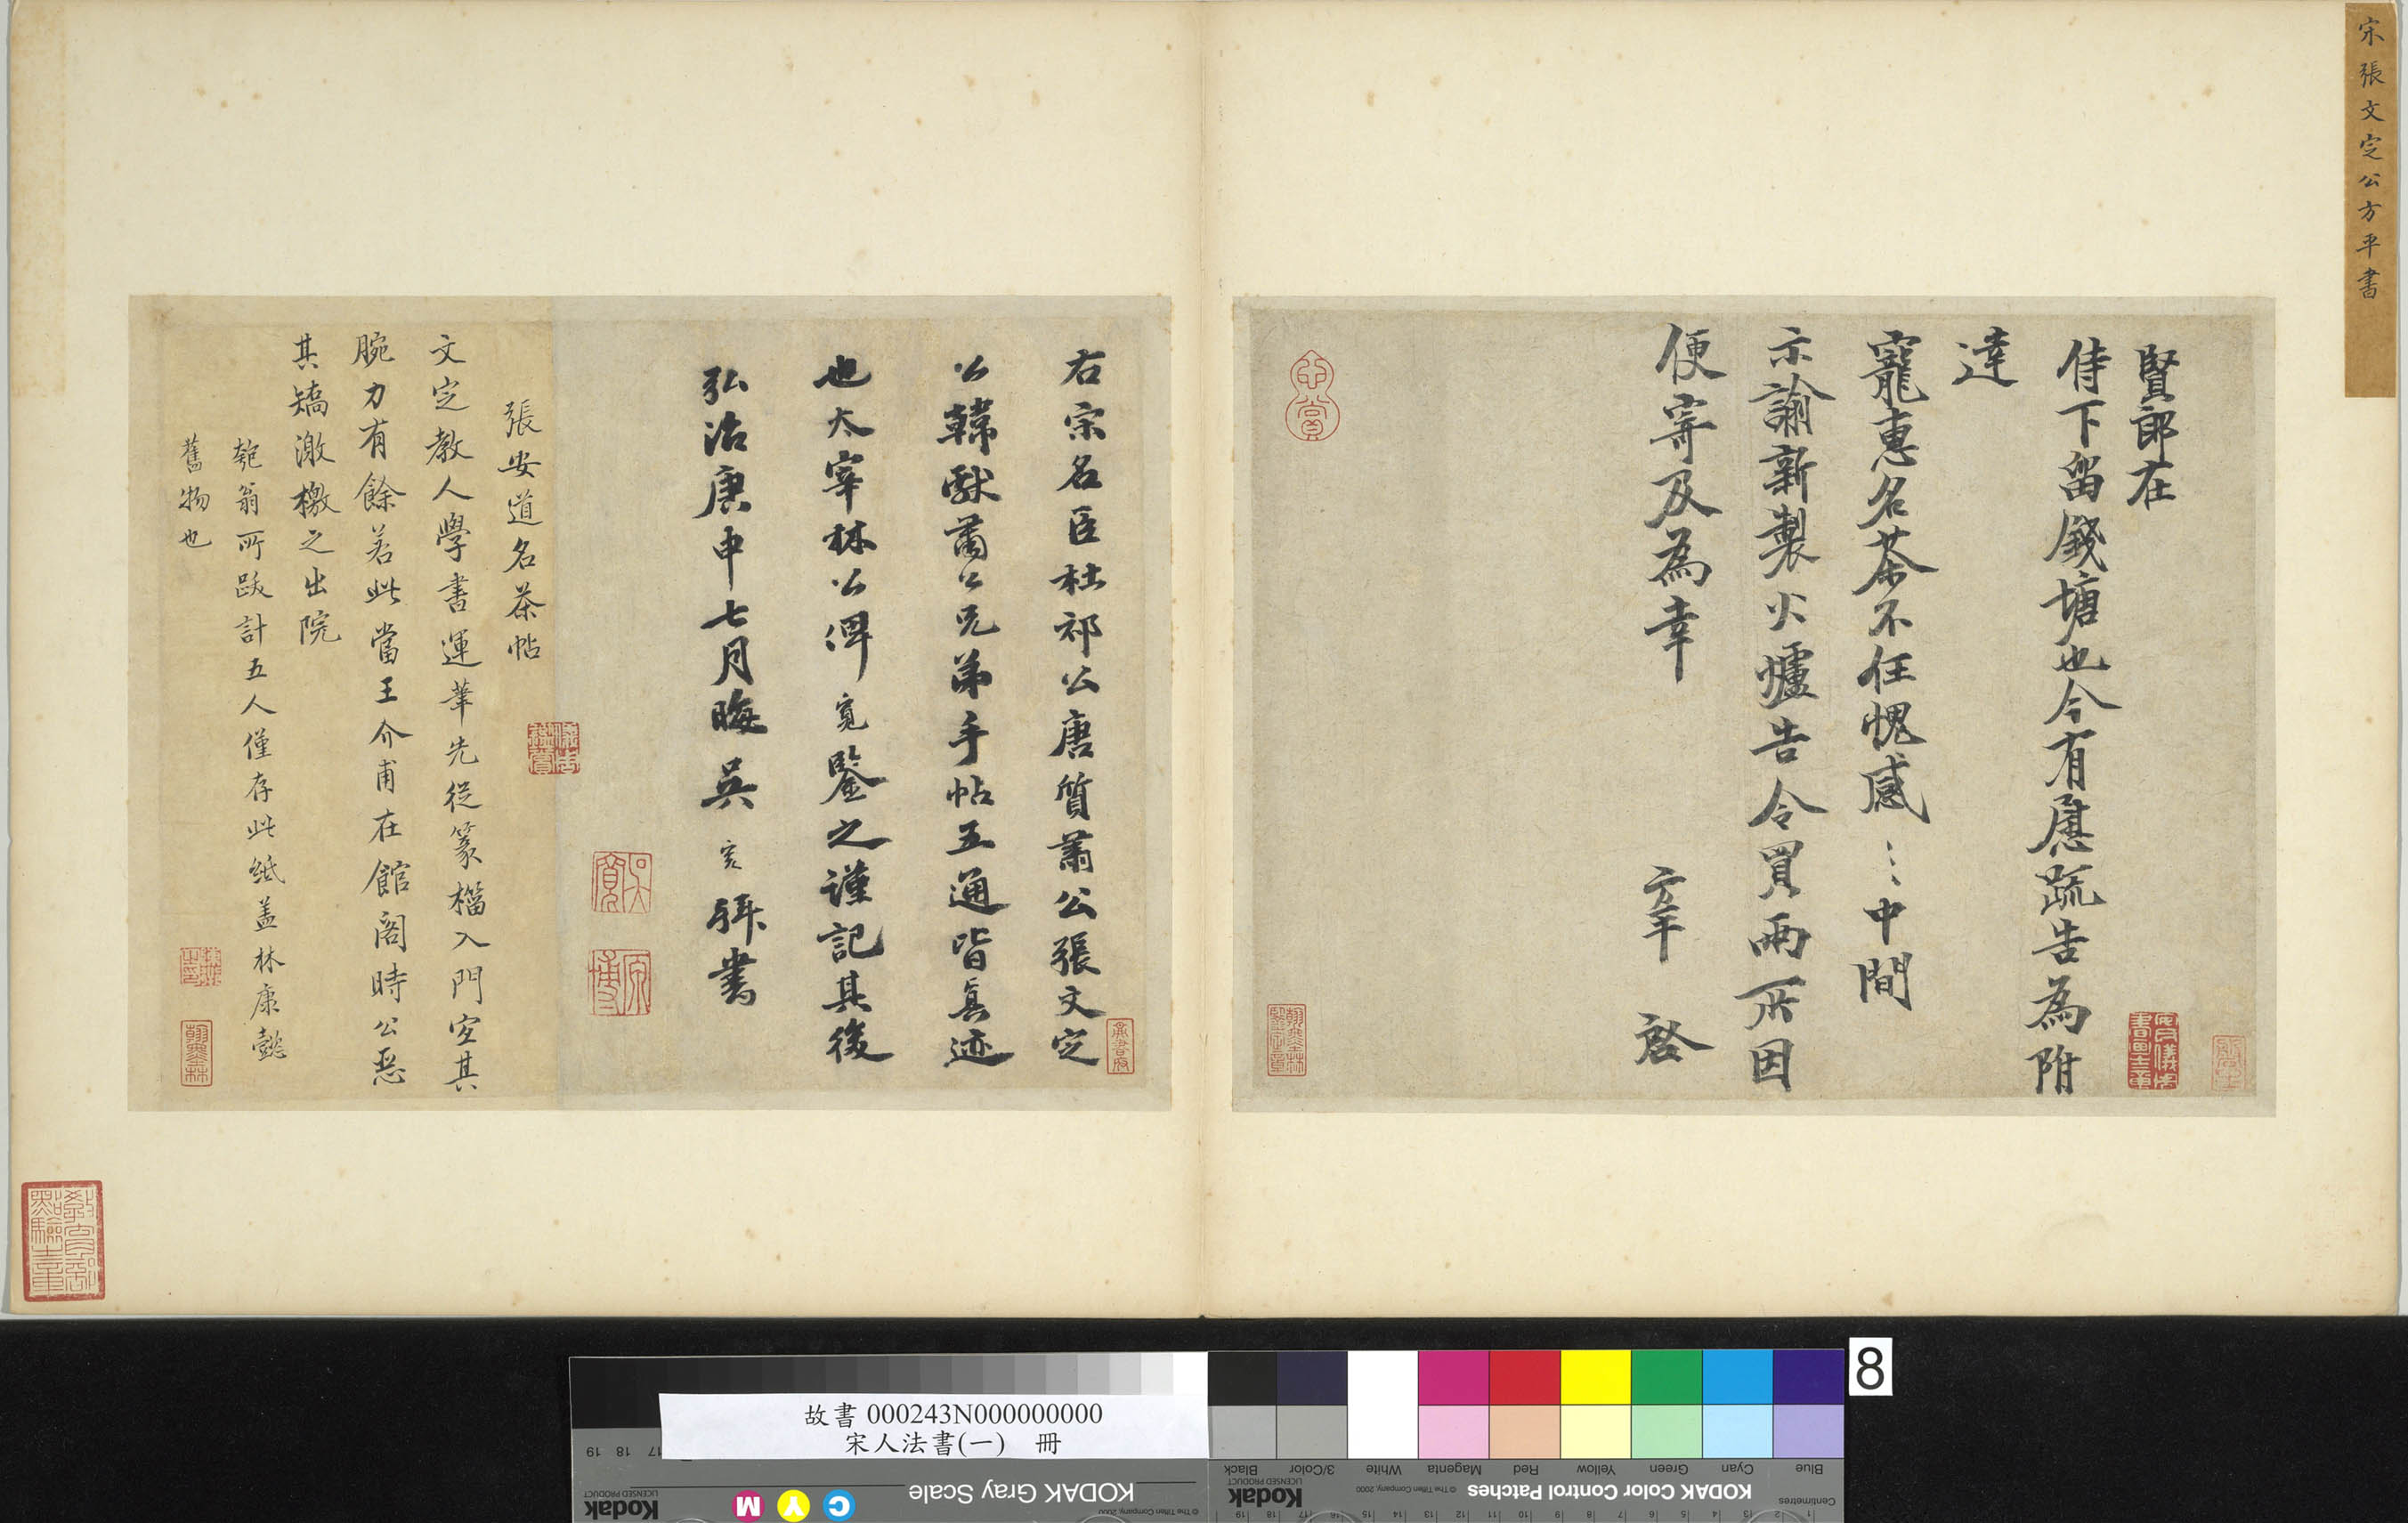 宋張文定公方平書
賢郎在
侍下留錢塘也今有慰疏告為附
達
寵惠名茶不任愧感〻中間
示諭新製火爐告令買兩所因
便寄及為幸
方平 啓
右宗名臣杜祁公唐質肅公張文定
公韓獻肅公兄弟手帖五通皆真迹
也太宰林公俾寬鑒之謹記其後
弘治庚申七月晦吳寬拜書
張安道名茶帖
文定教人學書運筆先從篆籀入門宜其
腕力有餘若此當王介甫在館閣時公惡
其矯激檄之出院
匏翁所跋計五人僅存此紙蓋林康懿
舊物也
吳寬
原博
8
故書 000243N000000000
宋人法書(一) 冊
19 18 17
KODAK Gray Scale
Kodak
LICENSED PRODUCT
© The Tiffen Company, 2000
C Y M
Blue Cyan Green Yellow Red Magenta White 3/Color Black
KODAK Color Control Patches
© The Tiffen Company, 2000
Kodak
LICENSED PRODUCT
Centimetres